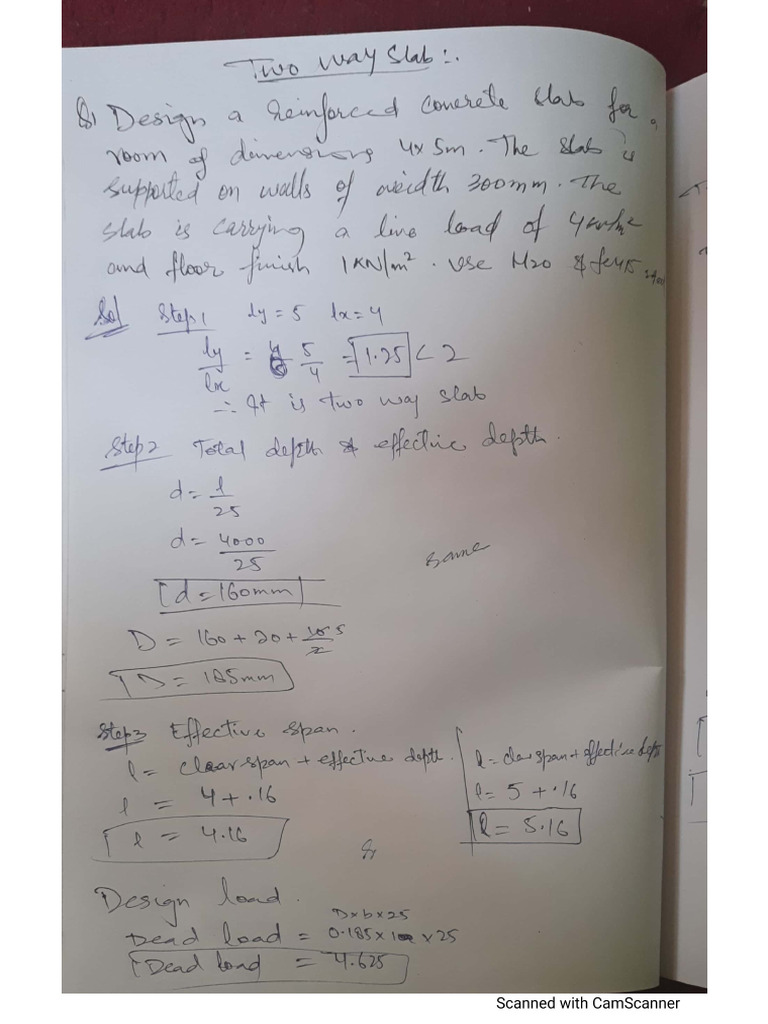 Two way slab:.
Q1 Design a Reinforced concrete slab for a
room of dimensions 4x5m. The slab is
supported on walls of weidth 300mm. The
slab is carrying a live load of 4KN/m²
and floor finish 1KN/m². Use M20 & fe415
Sol Step1 ly=5 lx=4
ly/lx = 5/4 = 1.25 < 2
∴ It is two way slab
Step2 Total depth & effective depth.
d = l/25
d = 4000/25
same
d=160mm
D = 160+20+10/2 5
D = 185mm
Step3 Effective span.
l = clear span + effective depth.
l = 4+.16
l = 4.16
l = clear span + effective depth
l = 5+.16
l = 5.16
&
Design load.
D×b×25
Dead load = 0.185×1×25
Dead load = 4.625
Scanned with CamScanner